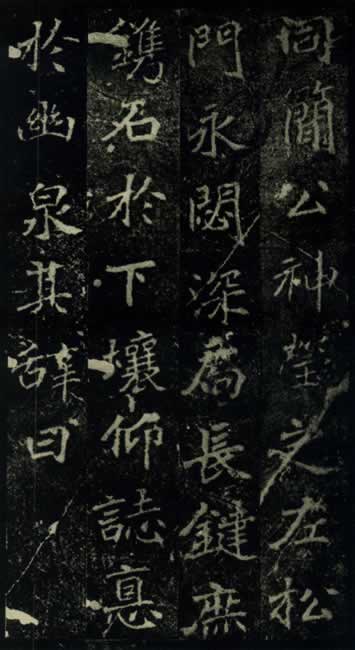 同簡公神塋之左松
門永閟深扃長鍵庶
鐫名於下壤仰誌悳
於幽泉其辞曰